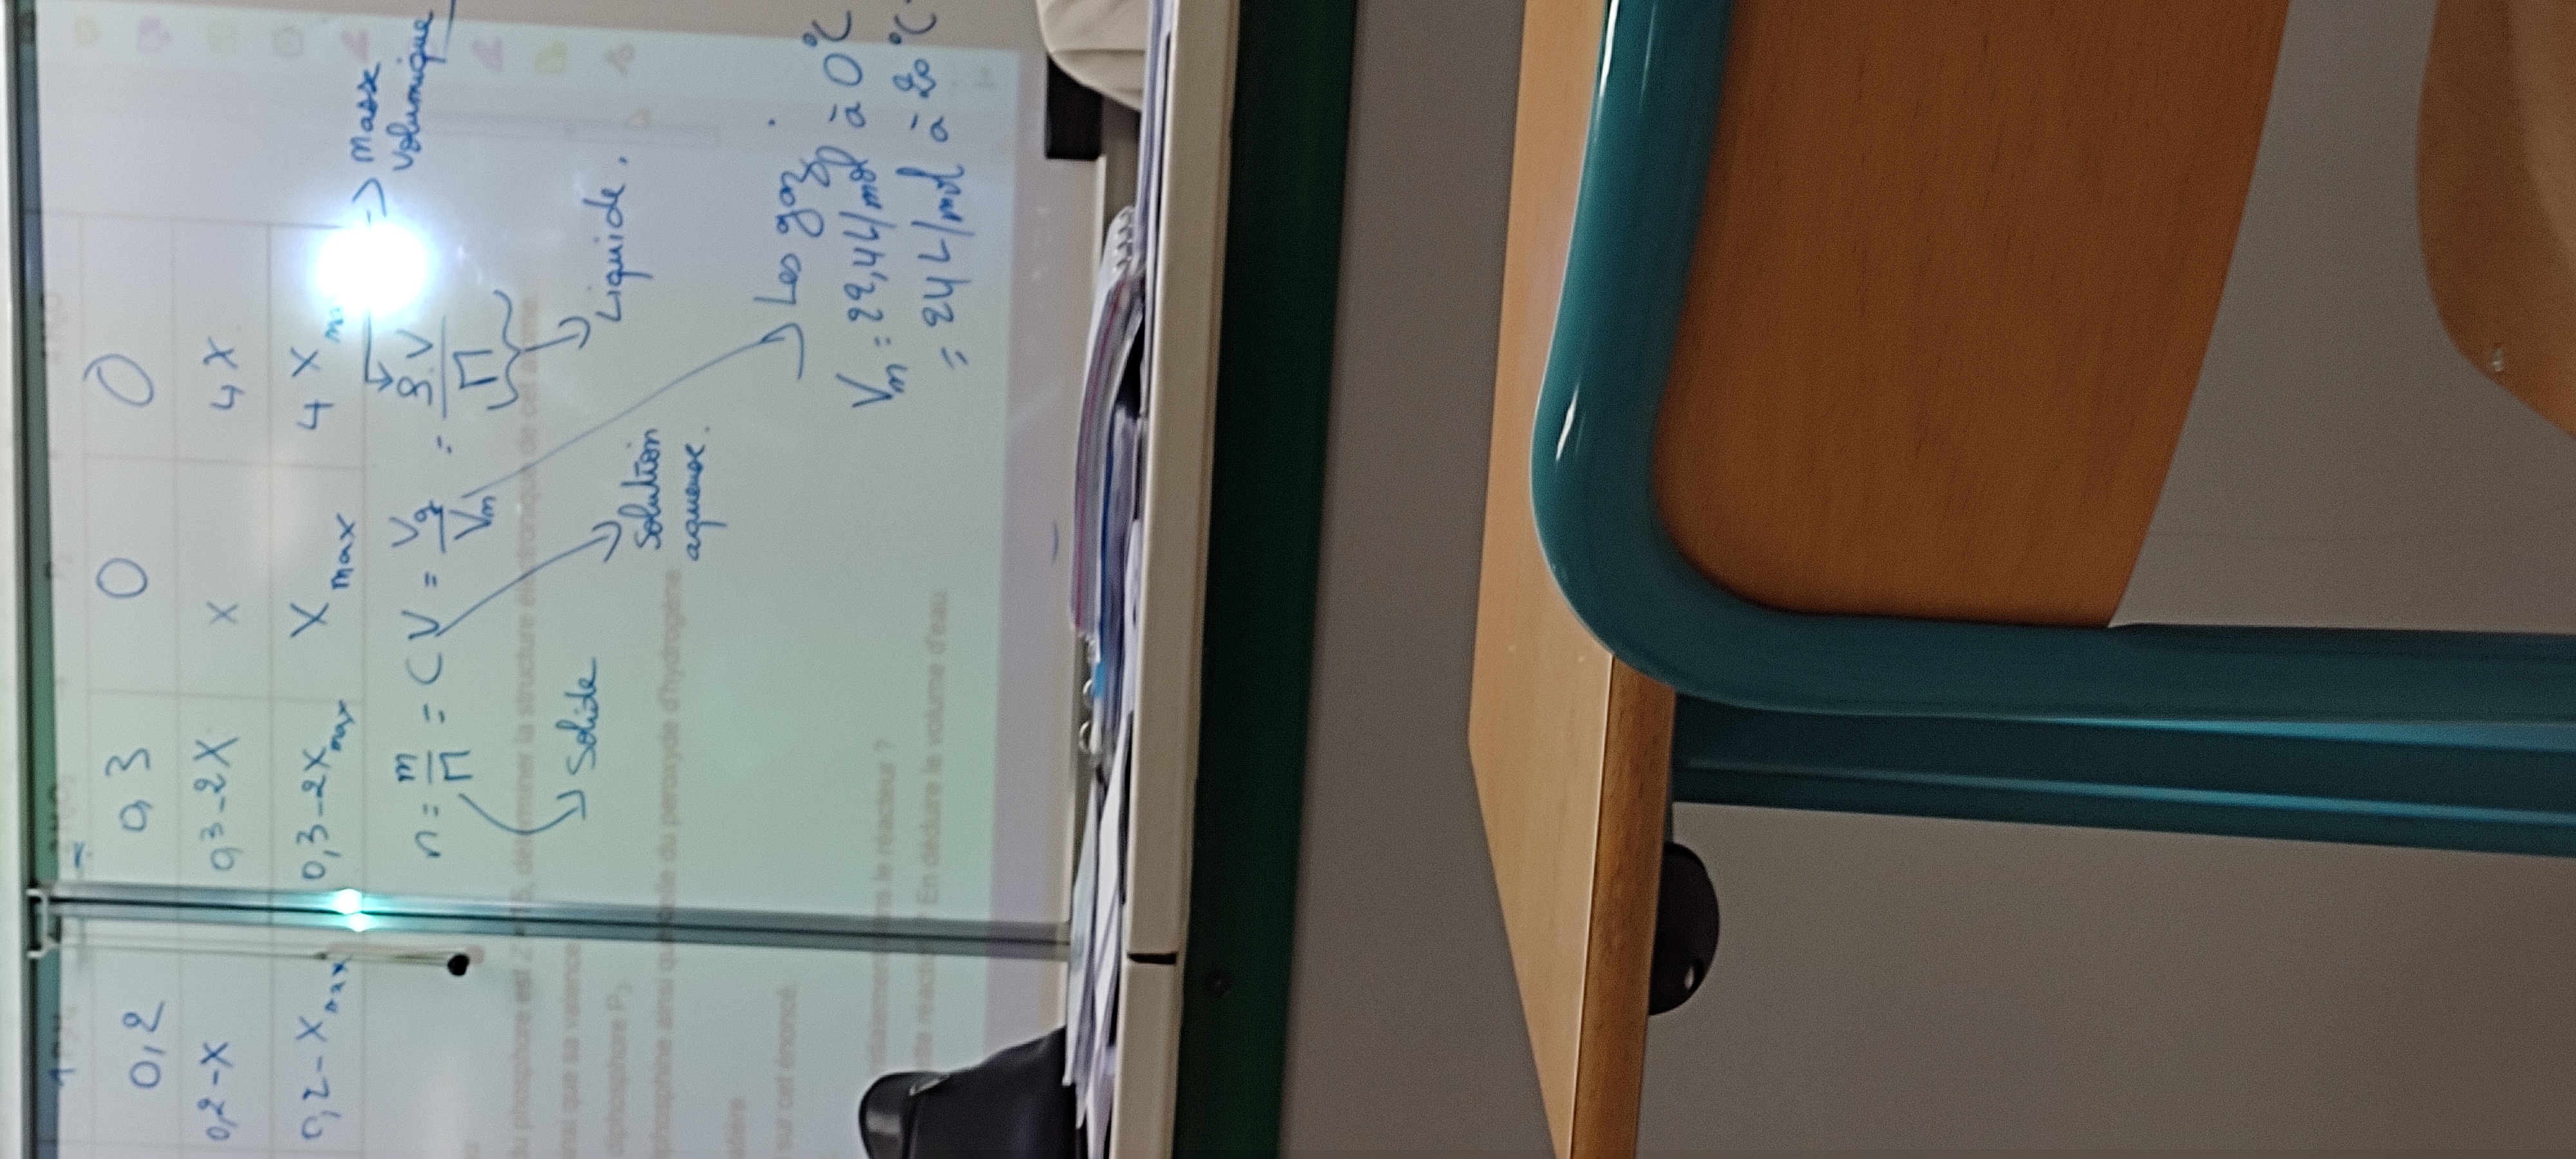 1 P₂H₄ 2 H₂O₂ P₂ 4 H₂O
0,2 0,3 0 0
0,2-X 0,3-2X X 4X
0,2-Xmax 0,3-2Xmax Xmax 4X
n = m/M = CV = Vg/Vm = ρ.V/M
Masse
Volumique
Solide
Liquide.
Solution
aqueuse.
Les gaz
Vm = 22,4L/mol à 0°C
= 24L/mol à 20°C
du phosphore est Z = 15, déterminer la structure électronique de cet atome.
ainsi que sa valence
diphosphore P₂
diphosphine ainsi que celle du peroxyde d'hydrogène.
sur cet énoncé.
initialement dans le réacteur ?
En déduire le volume d'eau.